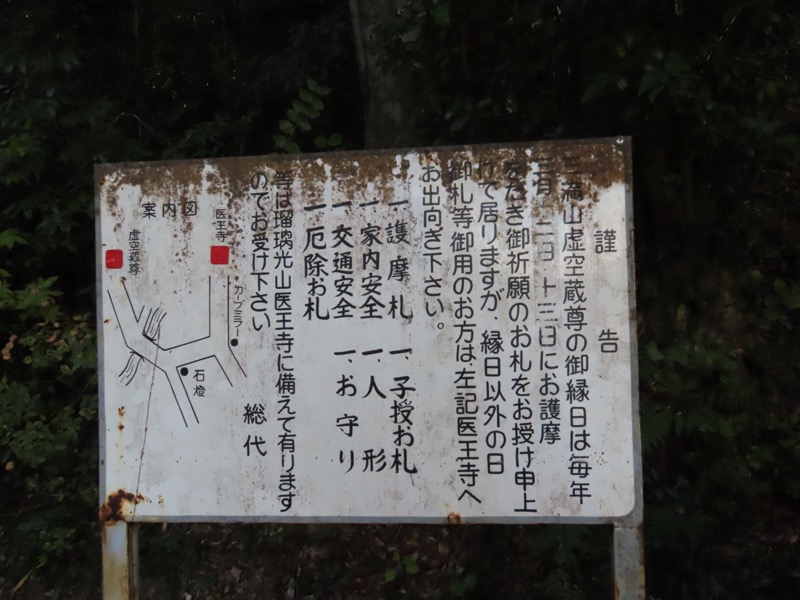 謹告
三満山虚空蔵尊の御縁日は毎年
三月 十二日 十三日にお護摩
をたき御祈願のお札をお授け申上
げて居りますが、縁日以外の日
御札等御用のお方は左記医王寺へ
お出向き下さい。
一、護摩札 一、子授お札
一、家内安全 一、人形
一、交通安全 一、お守り
一、厄除お札
等は瑠璃光山医王寺に備えて有ります
のでお受け下さい
総代
案内図
医王寺
虚空蔵尊
カーブミラー
石燈